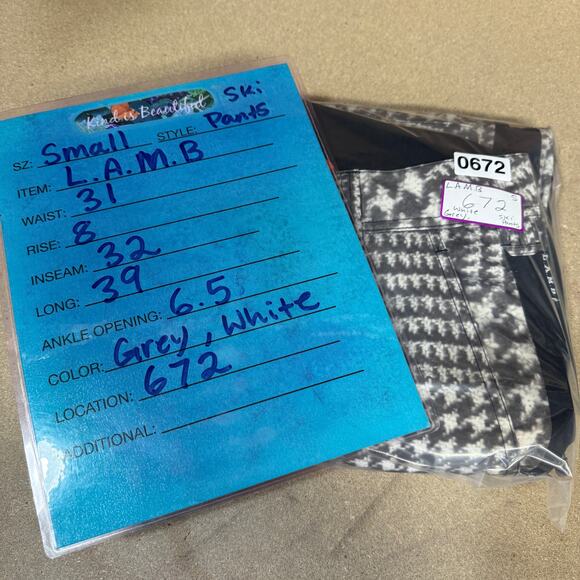 Kind is Beautiful
SZ: Small STYLE: Ski Pants
ITEM: L.A.M.B
WAIST: 31
RISE: 8
INSEAM: 32
LONG: 39
ANKLE OPENING: 6.5
COLOR: Grey, White
LOCATION: 672
ADDITIONAL:
0672
LAMB S
672
, White
Grey, Ski
Pants